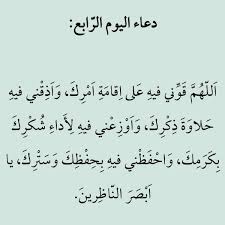 دعاء اليوم الرّابع:
اَللّهُمَّ قَوِّني فيهِ عَلى اِقامَةِ اَمْرِكَ، وَاَذِقْني فيهِ
حَلاوَةَ ذِكْرِكَ، وَاَوْزِعْني فيهِ لِأداءِ شُكْرِكَ
بِكَرَمِكَ، وَاحْفَظْني فيهِ بِحِفْظِكَ وَسَتْرِكَ، يا
اَبْصَرَ النّاظِرينَ.